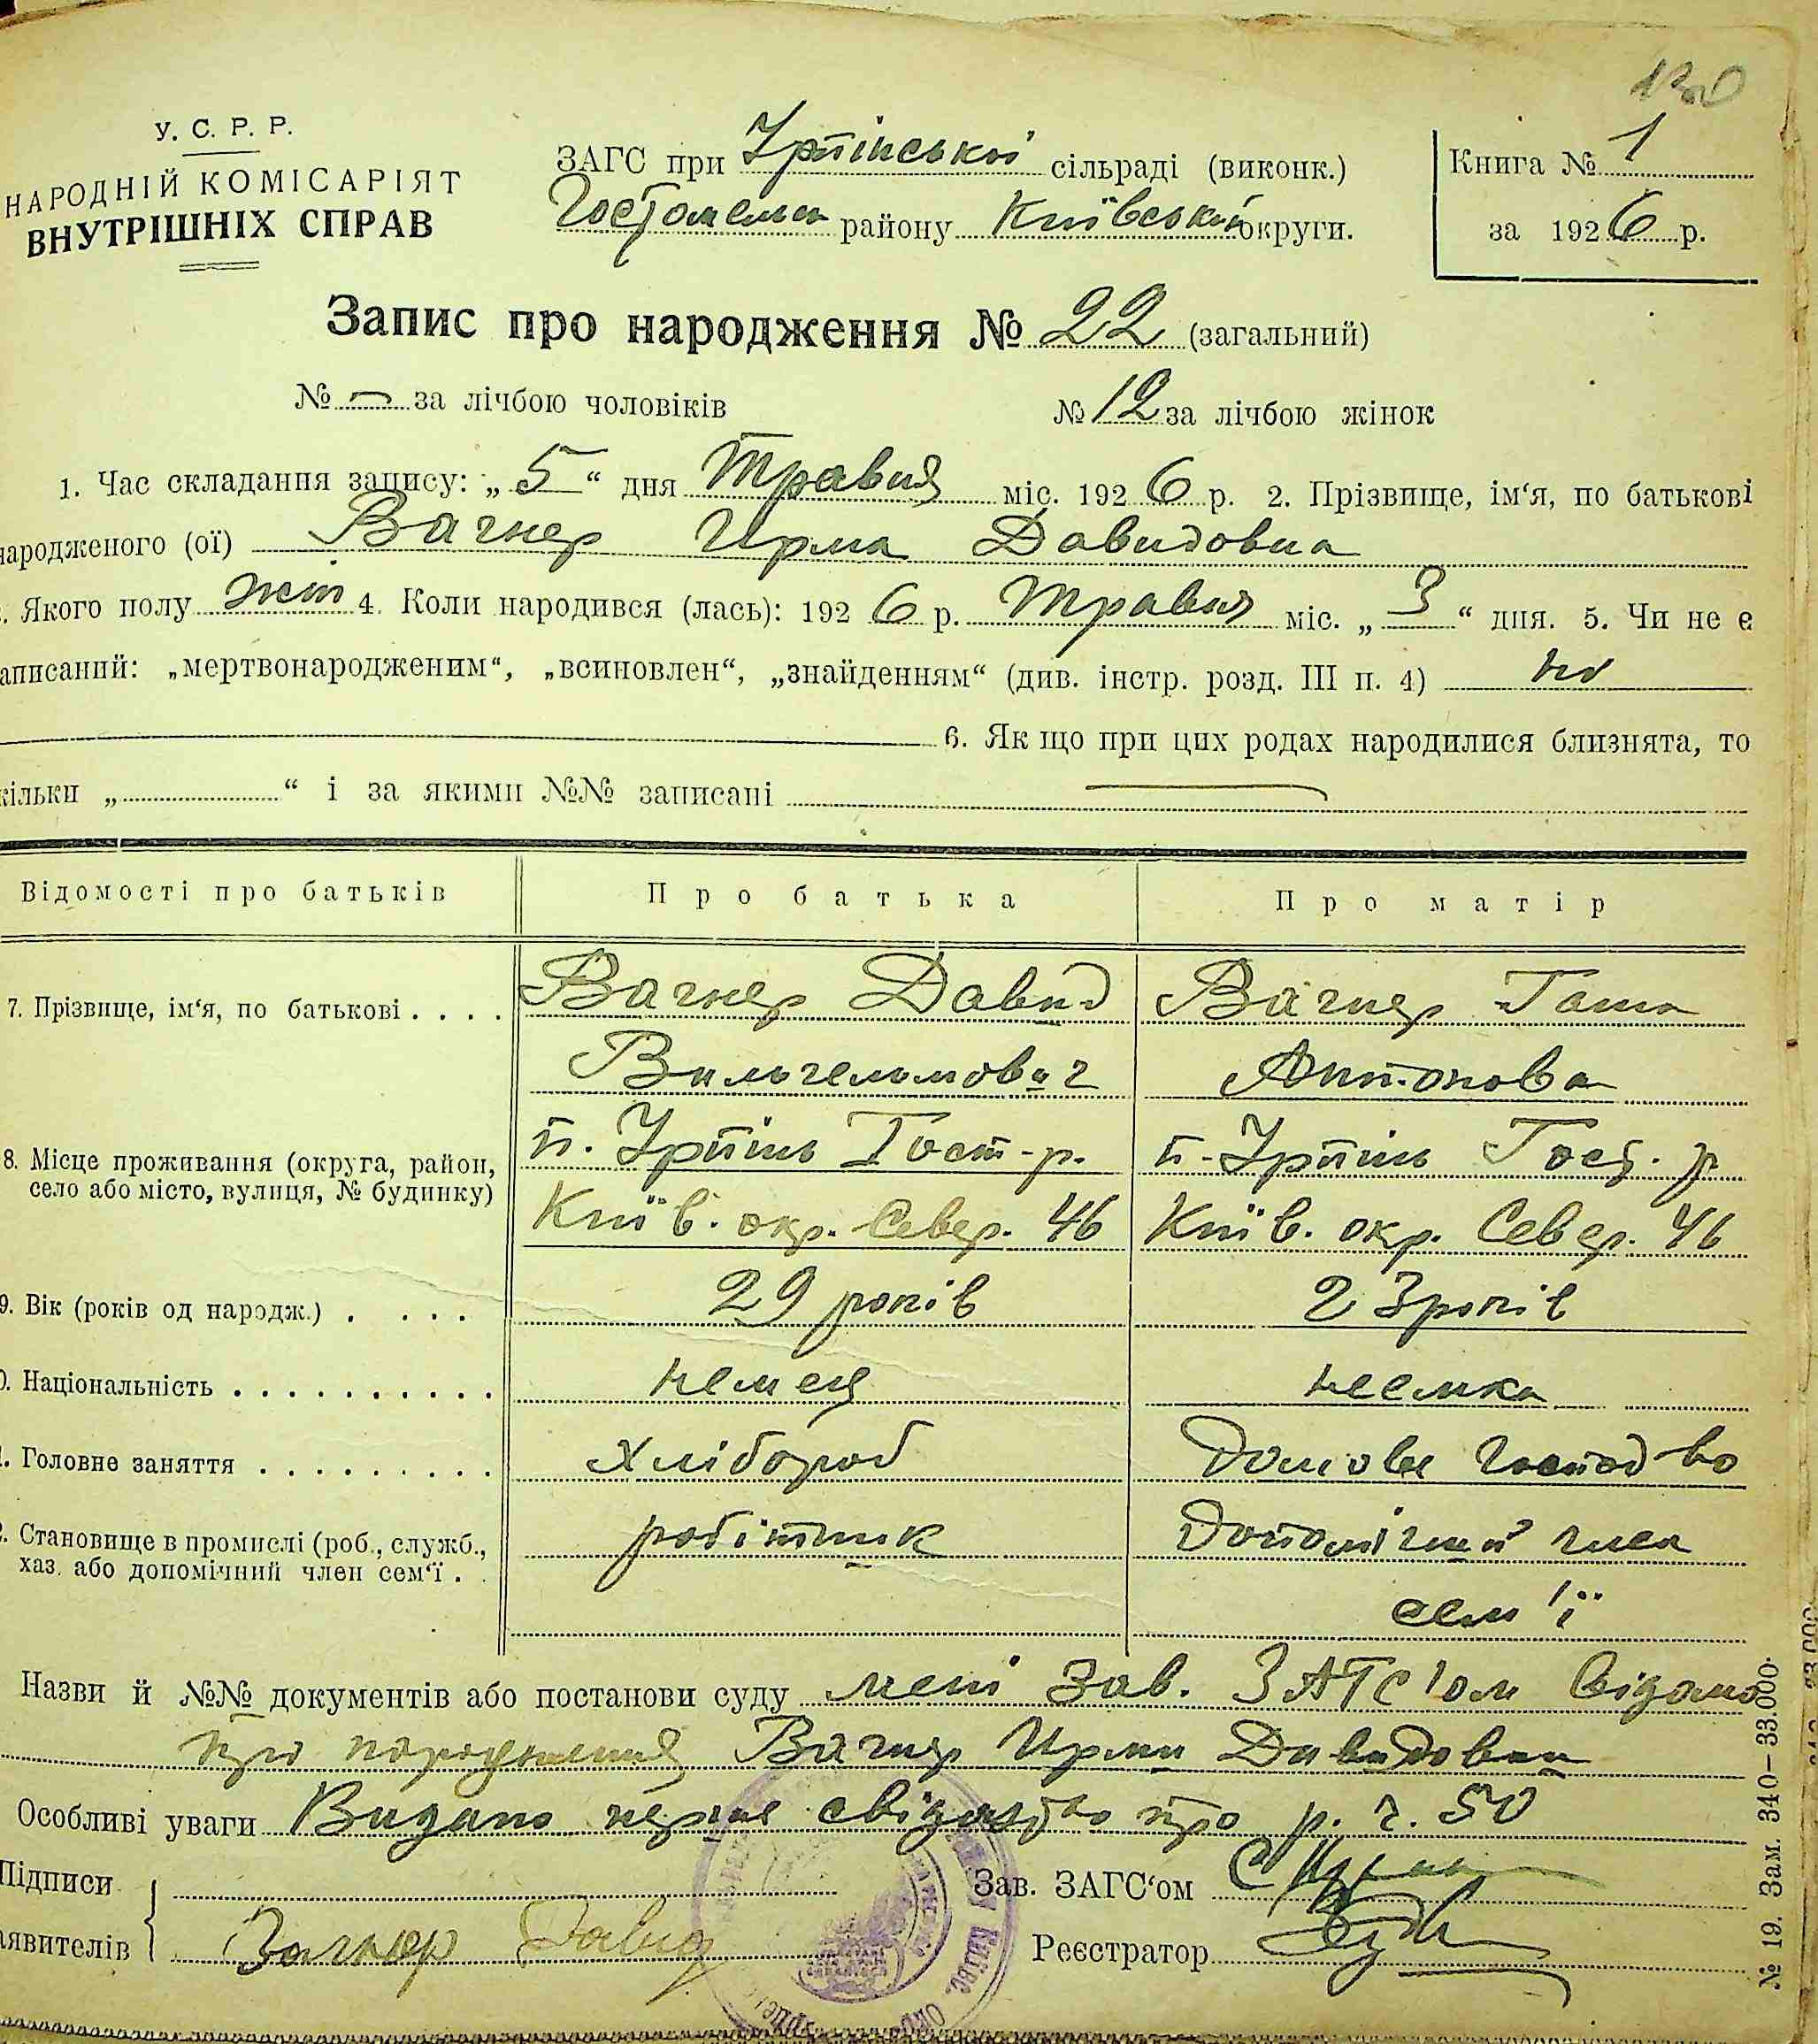 130
У. С. Р. Р.
НАРОДНІЙ КОМІСАРІЯТ
ВНУТРІШНІХ СПРАВ
ЗАГС при Ірпінської сільраді (виконк.)
Гостомельск району Київської округи.
Книга № 1
за 1926 р.
Запис про народження № 22 (загальний)
№ — за лічбою чоловіків № 12 за лічбою жінок
1. Час складання запису: „ 5 “ дня Травня міс. 1926 р. 2. Прізвище, ім‘я, по батькові
народженого (ої) Вагнер Ирма Давидовна
. Якого полу жін 4. Коли народився (лась): 1926 р. Травня міс. „ 3 “ дня. 5. Чи не є
аписаний: „мертвонародженим“, „всиновлен“, „знайденням“ (див. інстр. розд. III п. 4) ні
6. Як що при цих родах народилися близнята, то
кільки „ “ і за якими №№ записані —
Відомості про батьків Про батька Про матір
7. Прізвище, ім‘я, по батькові . . . . Вагнер Давид Вагнер
Вильгельмович Антонова
8. Місце проживання (округа, район, село або місто, вулиця, № будинку) п. Ірпінь Гост-р. п. Ірпінь Гост. р
Київ. окр. Север. 46 Київ. окр. Север. 46
9. Вік (років од народж.) . . . . 29 років 23 років
0. Національність . . . . . . . . . . . немец неемка
. Головне заняття . . . . . . . . . Хлібороб Домове господ-во
. Становище в промислі (роб., служб., хаз. або допомічний член сем‘ї . . робітник Допомічний член
сем'ї
Назви й №№ документів або постанови суду мені Зав. ЗАГС'ом Видано
про народження Вагнер Ирми Давидовни
Особливі уваги Видано перше свідоцтво про р. ч. 50
Підписи
аявителів Вагнер Давид
Зав. ЗАГС‘ом
Реєстратор
№ 19. Зам. 340—33.000.